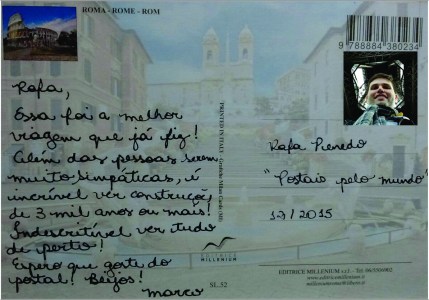 ROMA - ROME - ROM
9 788884 380234
Rafa,
Essa foi a melhor
viagem que já fiz!
Além das pessoas serem
muito simpáticas, é
incrível ver construções
de 3 mil anos ou mais!
Indescritível ver tudo
de perto!
Espero que goste do
postal! Beijos!
Marco
PRINTED IN ITALY
EDITRICE
MILLENIUM
SL.32
Rafa
"Postais pelo mundo"
2015
EDITRICE MILLENIUM s.r.l.